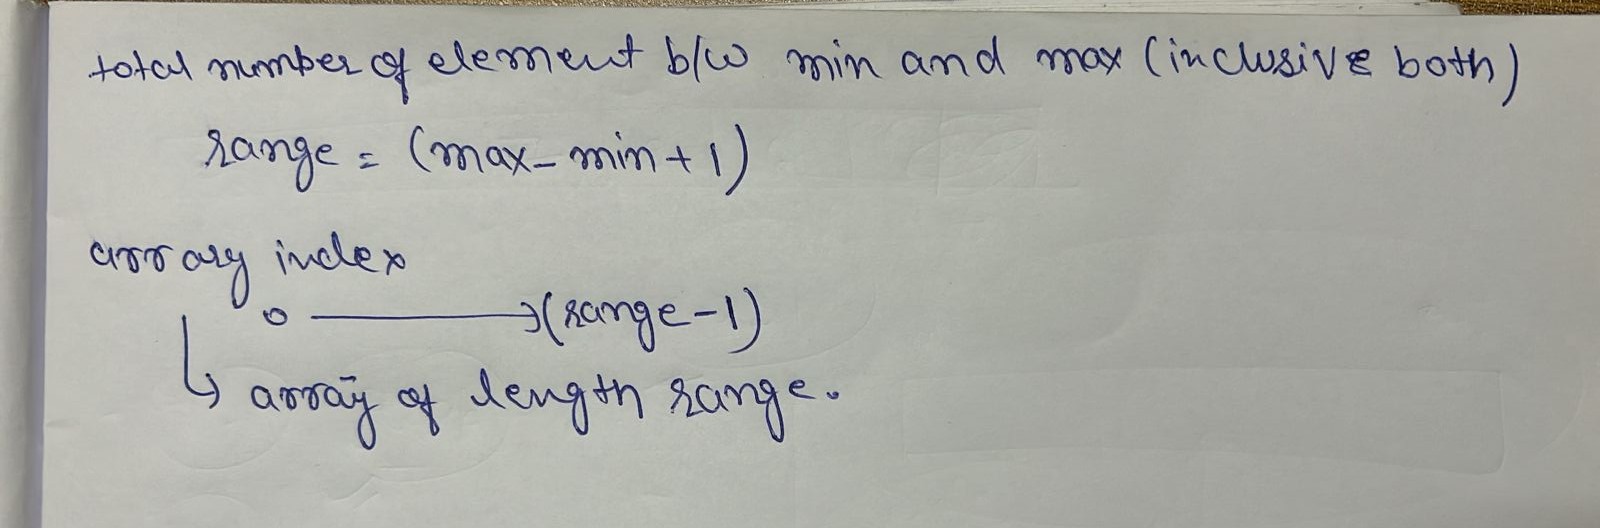 total number of element b/w min and max (inclusive both)
range = (max - min + 1)
array index
0 ⟶ (range - 1)
↳ array of length range.